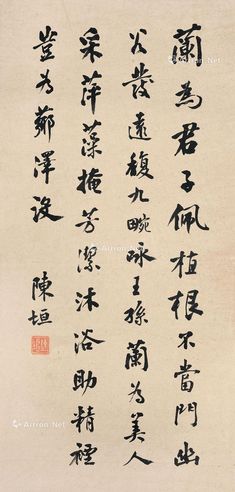 蘭為君子佩植根不當門幽
谷發遠馥九畹詠王孫蘭為美人
采萍藻掩芳潔沐浴助精禋
豈為薌澤設
陳垣
Artron.Net
Artron.Net
Artron.Net
Artron.Net